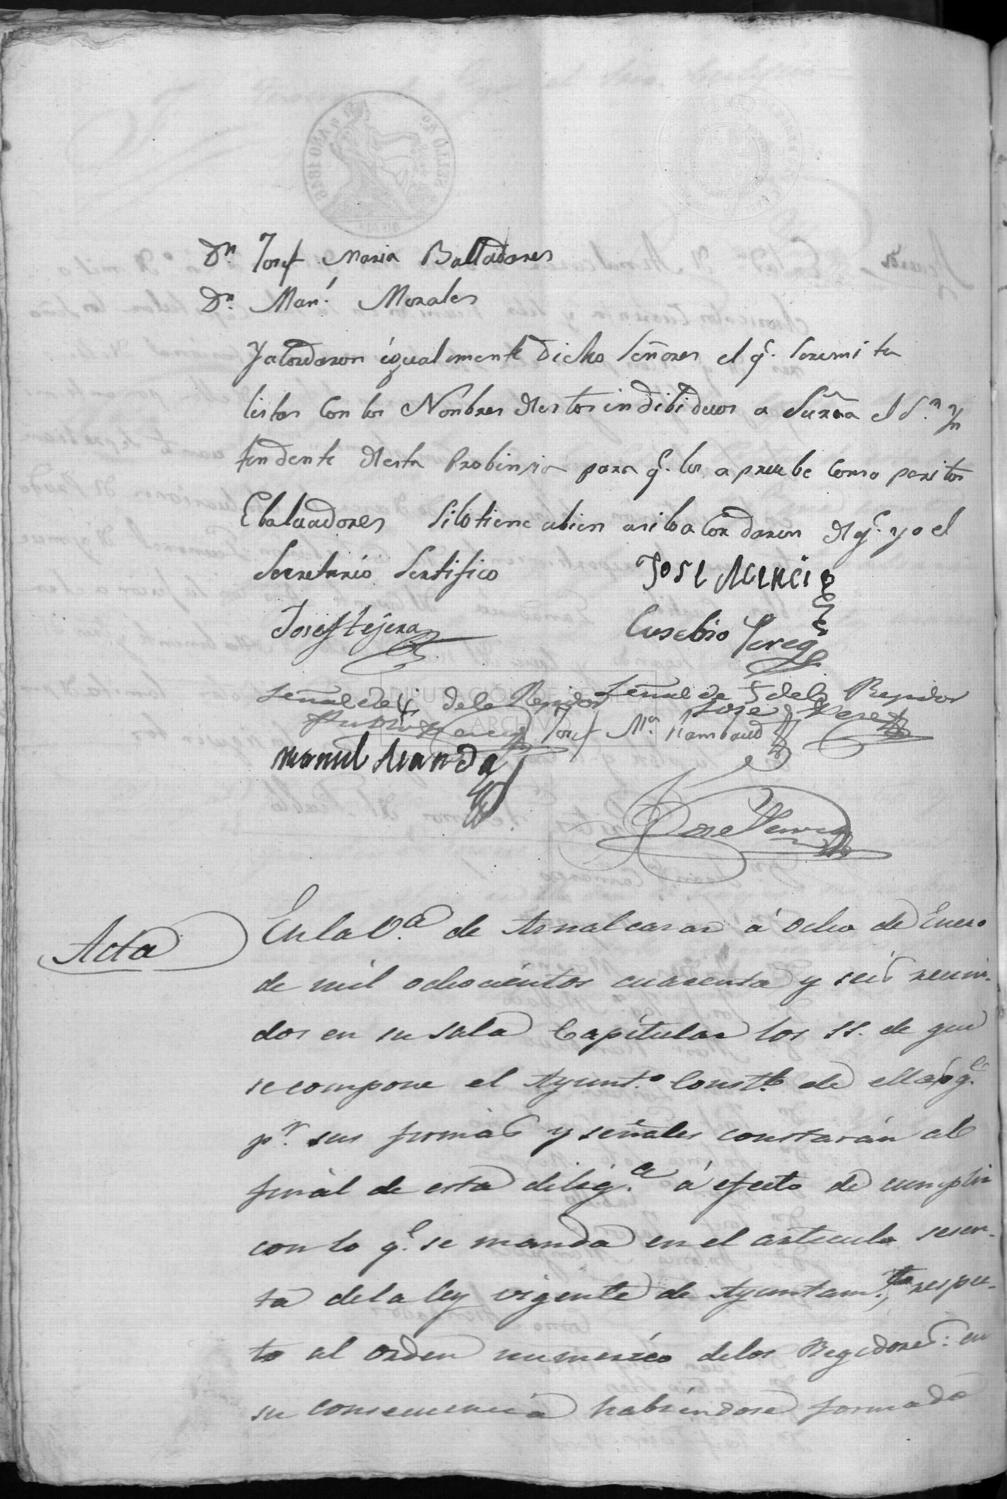 Dn Josef Maria Balladares
Dn. Man.l Morales
Yacordaron igualmente Dicho Señores el q.e seremita
listas Con los Nombres destos indibiduos a Su el S.r Yn
tendente desta Probinsia para q.e los apruebe Como peritos
Ebaluadores Silotiene abien asiloacordaron deq.e yo el
Secretario Sertifico
JOSE
Josef tejera
Eusebio Perez
Señal de del 4 Regidor
Señal de del 5 Regidor
Jose Perez
Josef M.a Rambaud
manuel Aranda
Jose
Acta
En la V.a de Asnalcasar á ocho de Enero
de mil ochocientos cuarenta y seis reuni-
dos en su sala Capitular los SS. de que
se compone el Ayunt.o Const.l de ella q.e
p.r sus firmas y señales constarán al
final de esta dilig.a á efecto de cumplir
con lo q.e se manda en el articulo sesen-
ta dela ley vigente de Ayuntam.tos respec-
to al orden numerico delos Regidores: en
su consecuencia habiendose formado